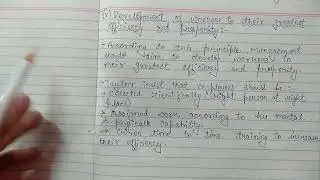 (v) Development of workers to their greatest
efficiency and prosperity:-
→ According to this principle, management
should taime to develop workers to
their greatest efficiency and prosperity.
→ Taylor insist that employees should be:-
→ Selected scientifically (right person at right
place)
→ Assigned work according to his mental
& physical capability.
→ Given time to time training to increase
their efficiency.